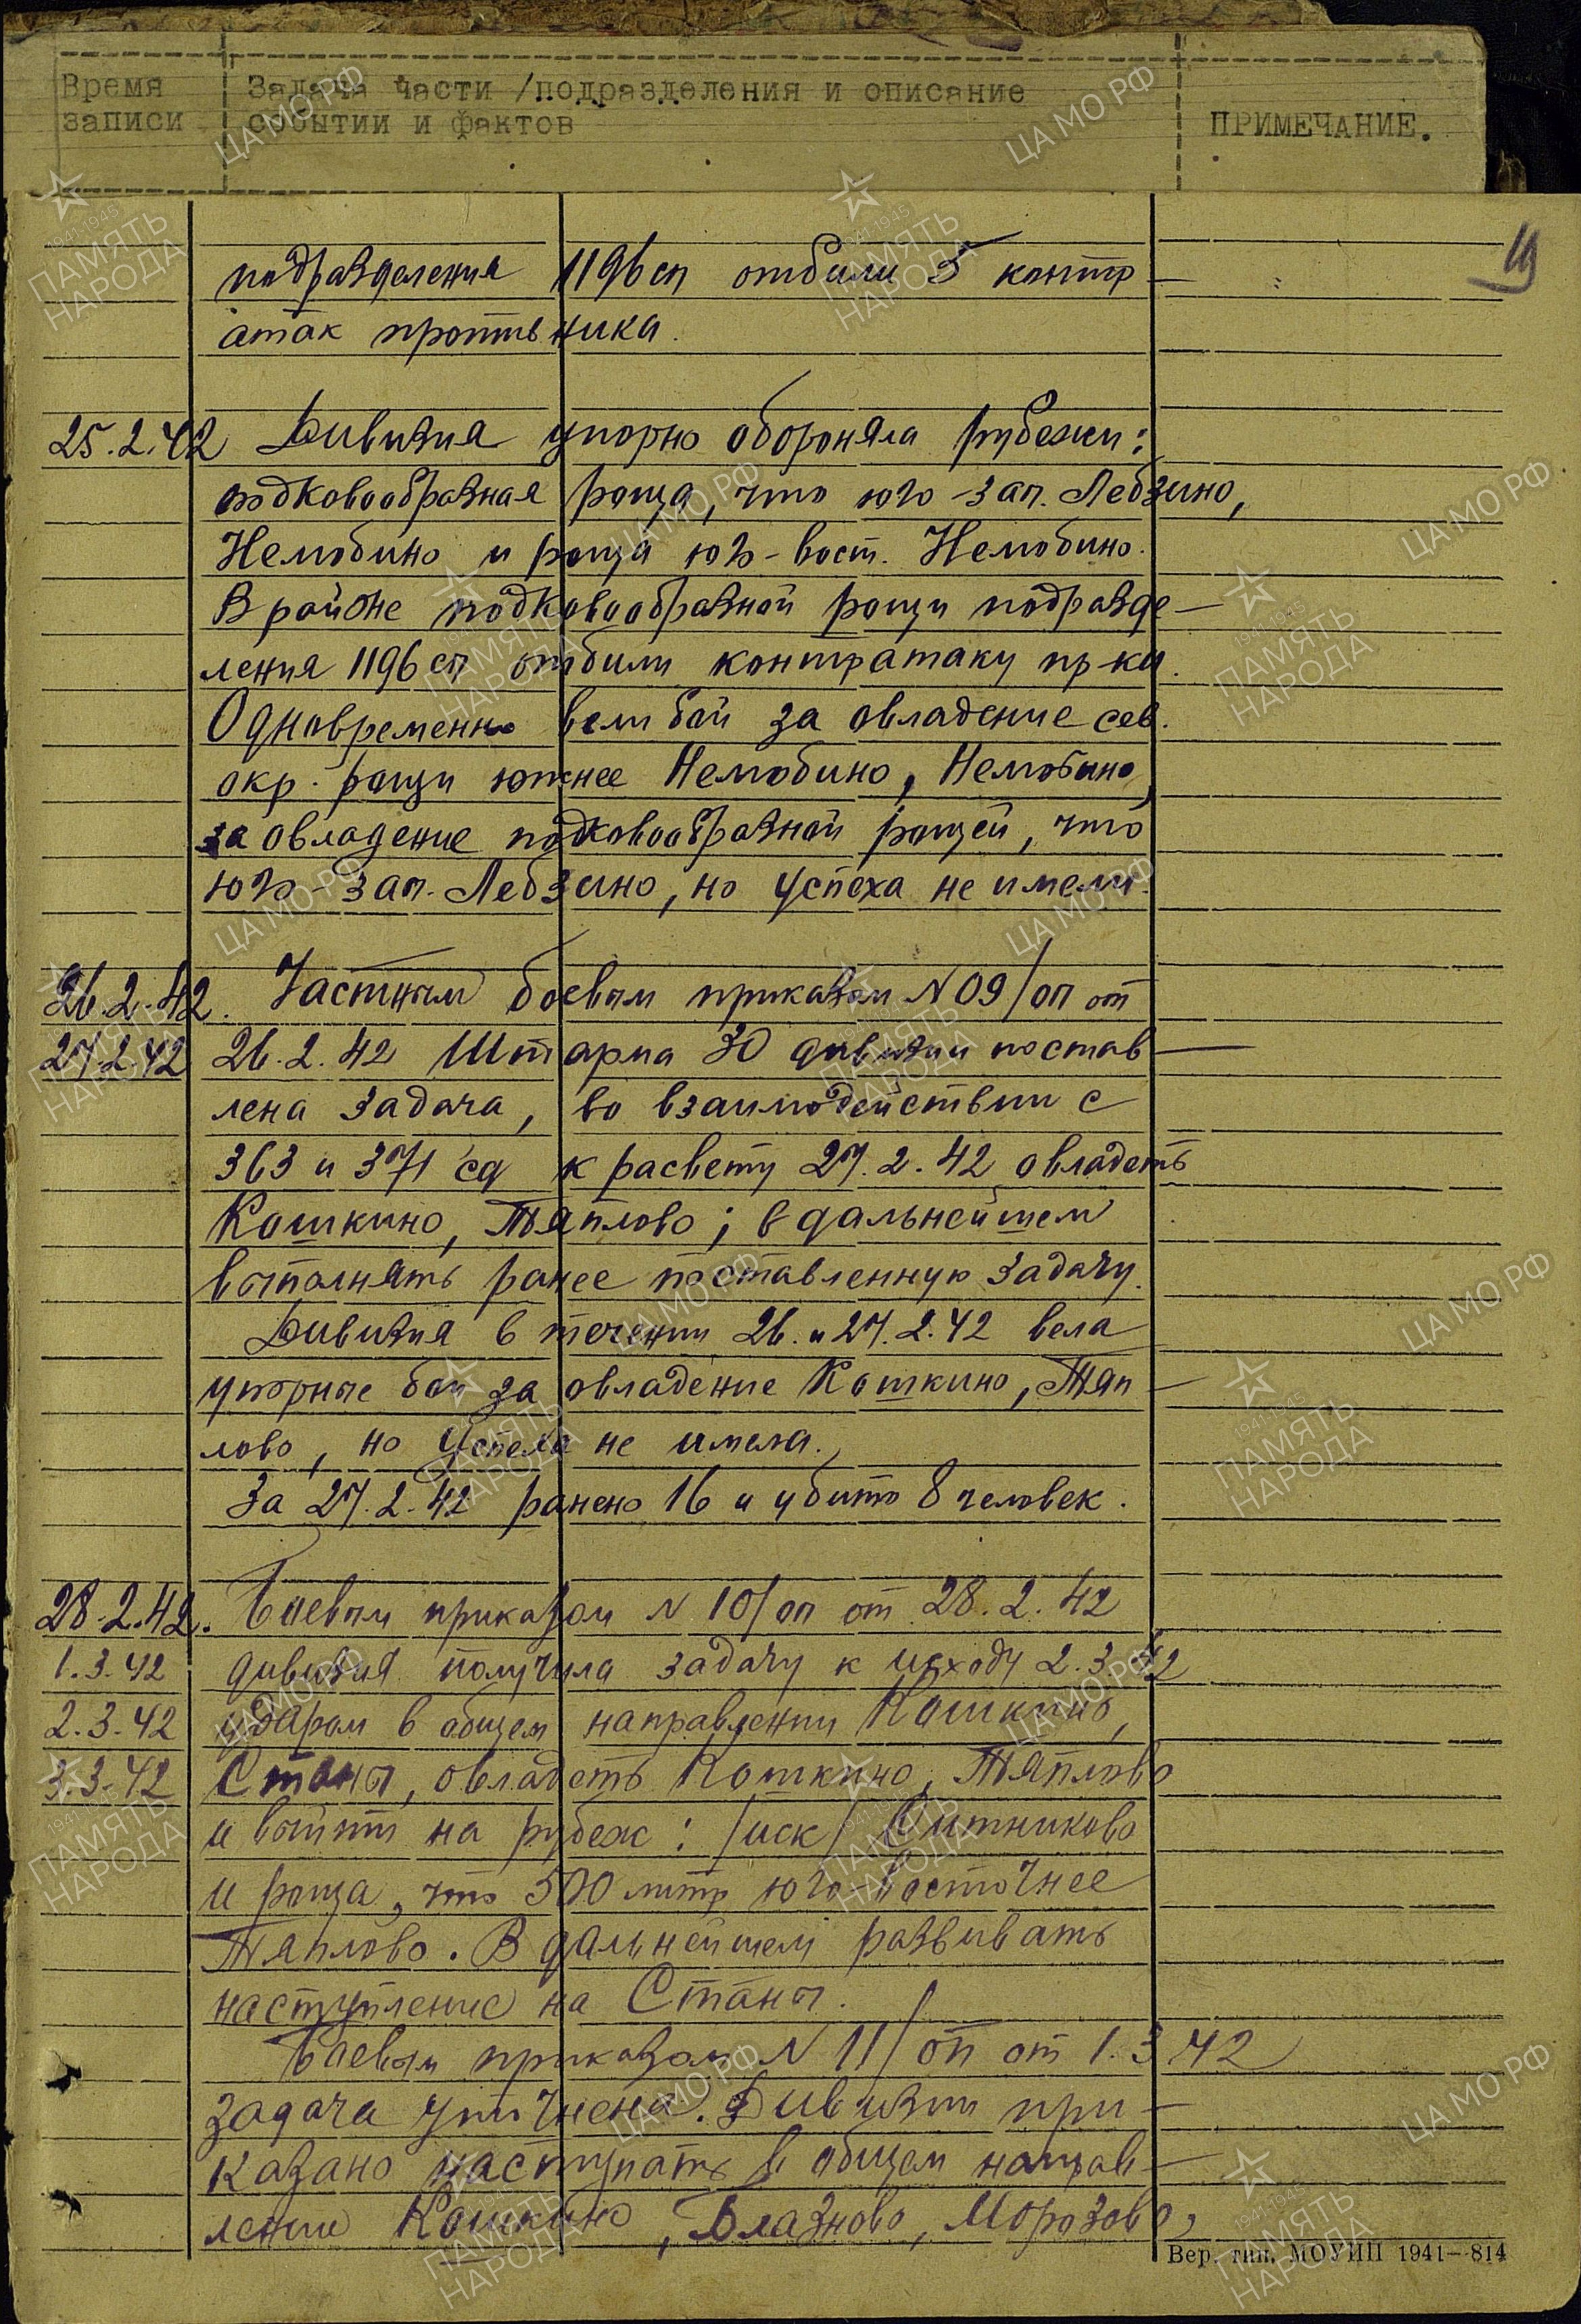 Время Задача части /подразделения и описание
записи событий и фактов ПРИМЕЧАНИЕ.
подразделения 1196 сп отбили 5 контр-
атак противника.
25.2.42 Дивизия упорно обороняла рубежи:
подковообразная роща, что юго-зап. Лебзино,
Немобино и роща юго-вост. Немобино.
В районе подковообразной рощи подразде-
ления 1196 сп отбили контратаку пр-ка.
Одновременно вели бой за овладение сев.
окр. рощи южнее Немобино, Немобино,
за овладение подковообразной рощей, что
юго-зап. Лебзино, но успеха не имели.
26.2.42. Частным боевым приказом N 09/оп от
27.2.42 26.2.42 Штарма 30 дивизии постав-
лена задача, во взаимодействии с
363 и 371 сд к расвету 27.2.42 овладеть
Кошкино, Тяплово; в дальнейшем
выполнять ранее поставленную задачу.
Дивизия в течении 26. и 27.2.42 вела
упорные бои за овладение Кошкино, Тяп-
лово, но успеха не имела.
За 27.2.42 ранено 16 и убито 8 человек.
28.2.42. Боевым приказом N 10/оп от 28.2.42
1.3.42 дивизия получила задачу к исходу 2.3.42
2.3.42 ударом в общем направлении Кошкино,
3.3.42 Станы, овладеть Кошкино, Тяплово
и выйти на рубеж: /иск/ Ситниково
и роща, что 500 митр юго-восточнее
Тяплово. В дальнейшем развивать
наступление на Станы.
Боевым приказом N 11/оп от 1.3.42
задача уточнена. Дивизии при-
казано наступать в общем направ-
лении Кошкино, Блазново, Морозово,
Вер. тип. МОУИП 1941—814
ЦА МО РФ
ПАМЯТЬ НАРОДА
1941-1945